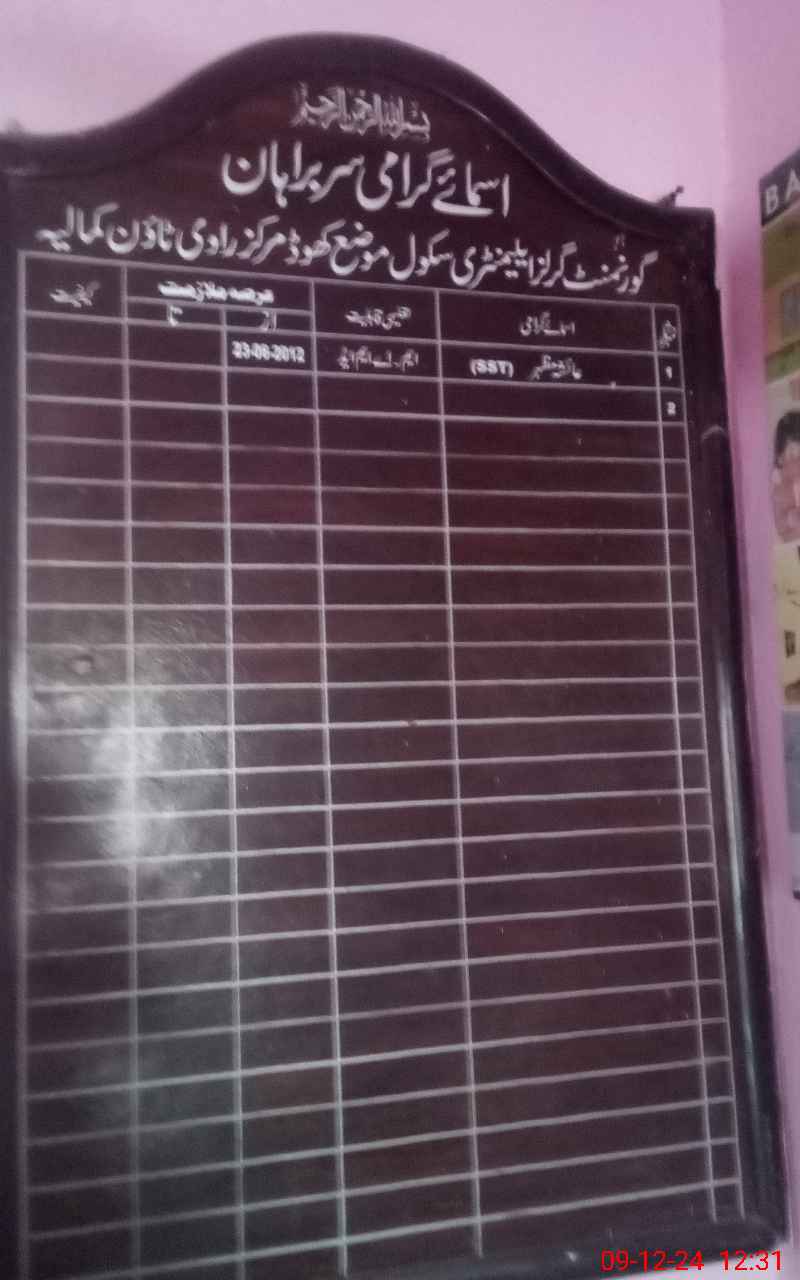 بسم اللہ الرحمن الرحیم
اسمائے گرامی سربراہان
گورنمنٹ گرلز ایلیمنٹری سکول موضع کھوڈ مرکز راوی ٹاؤن کمالیہ
اسمائے گرامی تعلیمی قابلیت عرصہ ملازمت کیفیت
از تا
1 عائشہ مظہر (SST) ایم۔اے ایم ایڈ 23-06-2012
2
BA
09-12-24 12:31